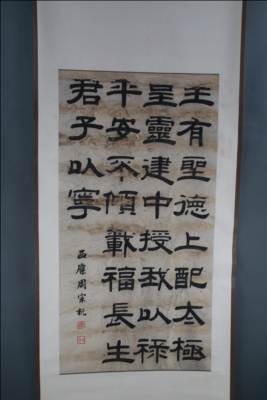 王有聖德上配太極
皇靈建中授我以祿
平安不傾載福長生
君子以寧
周宗